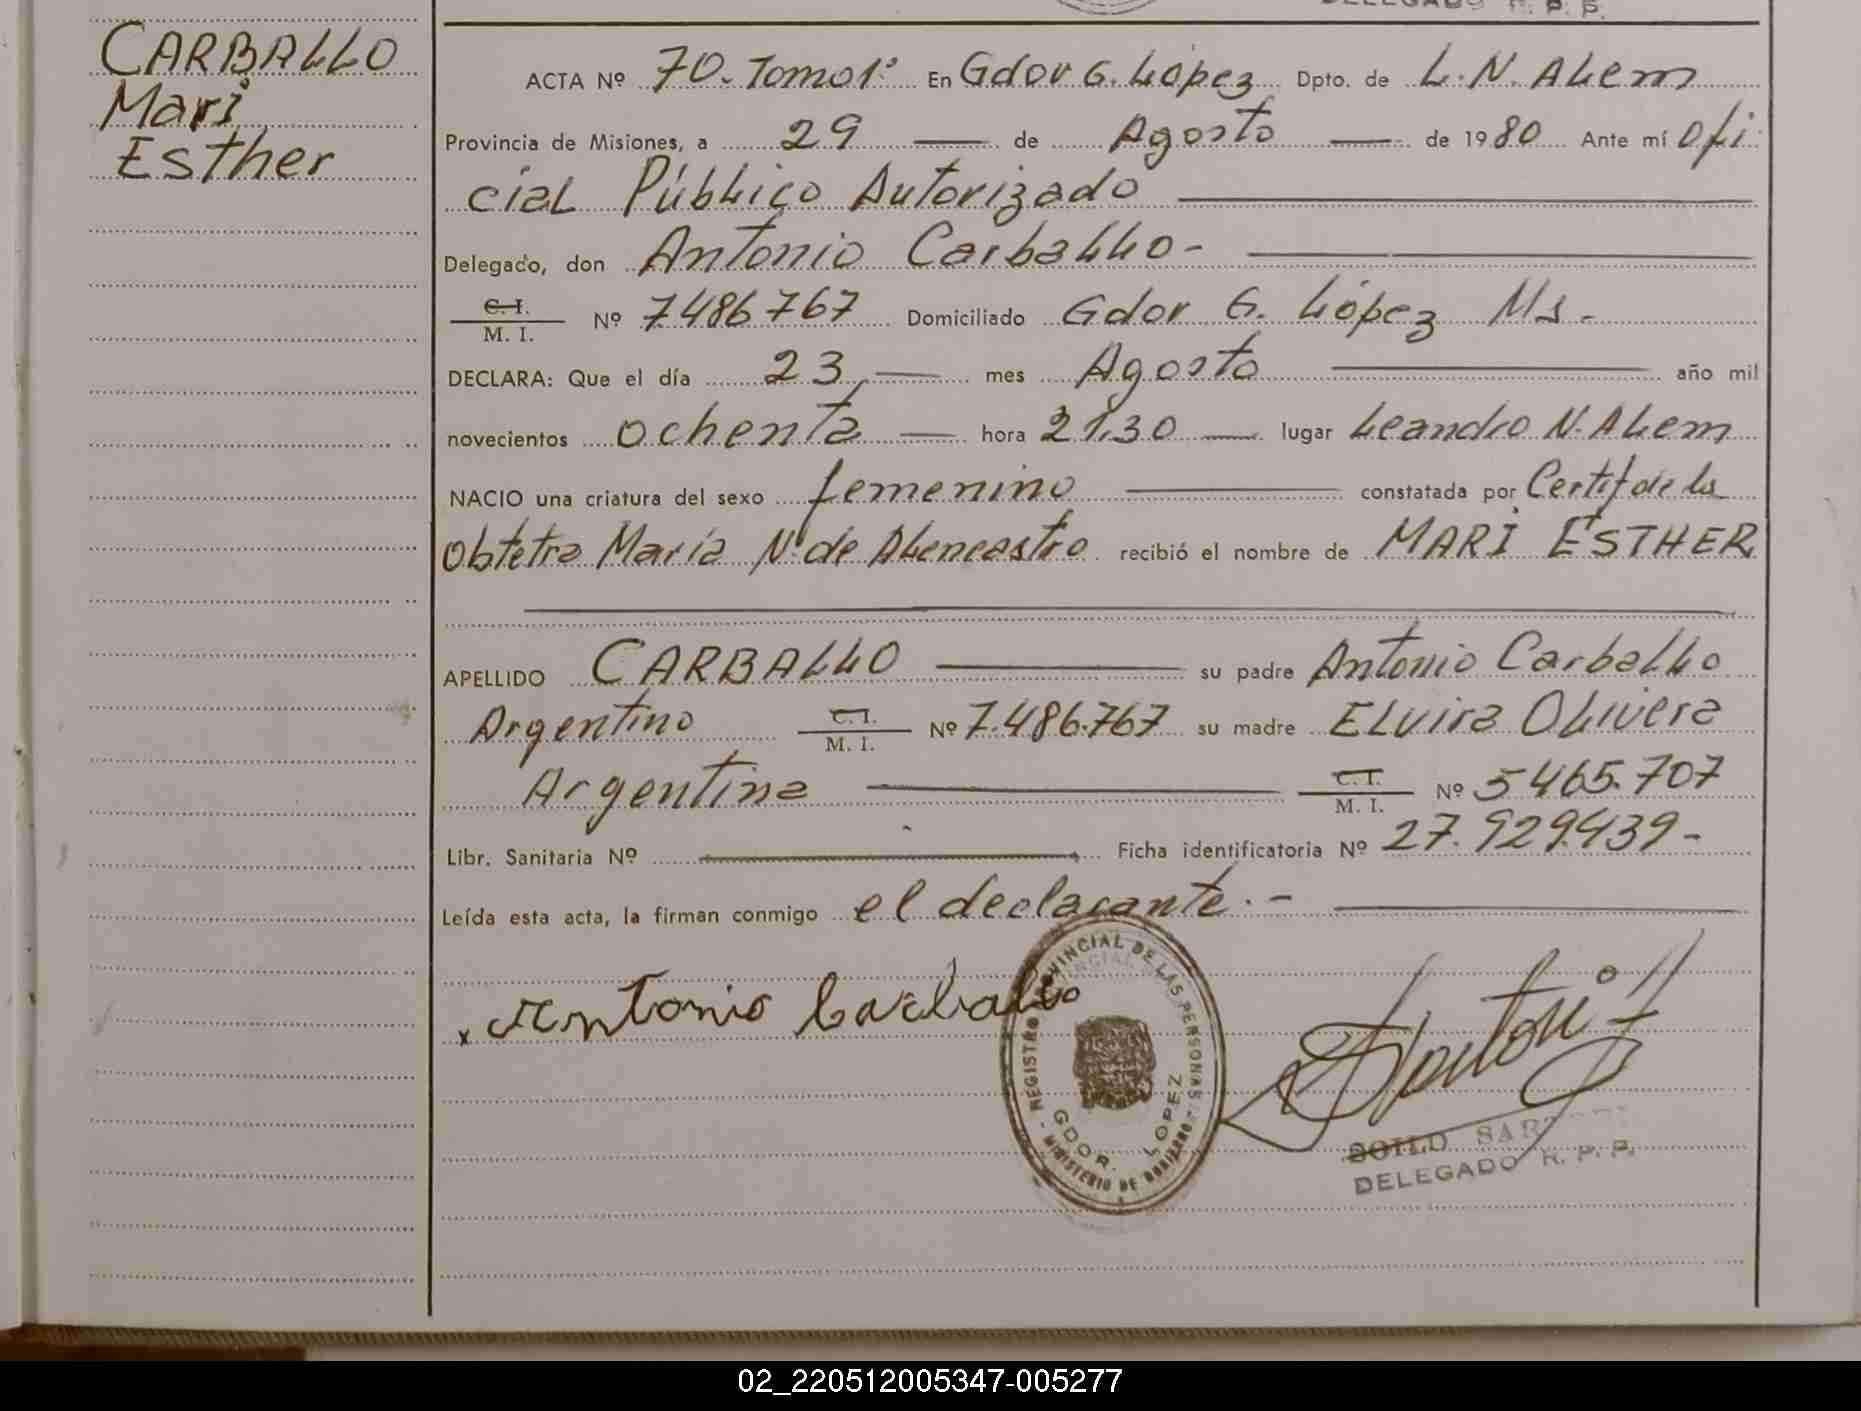 DELEGADO R. P. P.
CARBALLO
Mari
Esther
ACTA Nº 70. Tomo 1º En Gdor G. López Dpto. de L. N. ALem
Provincia de Misiones, a 29 de Agosto de 1980 Ante mí Ofi
cial Público Autorizado
Delegado, don Antonio Carballo-
C. I.
M. I. Nº 7.486.767 Domiciliado Gdor G. López Ms.-
DECLARA: Que el día 23 mes Agosto año mil
novecientos ochenta hora 21,30 lugar Leandro N. ALem
NACIO una criatura del sexo femenino constatada por Certif de la
Obtetra María N. de ALencastro recibió el nombre de MARI ESTHER
APELLIDO CARBALLO su padre Antonio Carballo
Argentino C. I.
M. I. Nº 7.486.767 su madre ELvira Olivera
Argentina C. I.
M. I. Nº 5465.707
Libr. Sanitaria Nº Ficha identificatoria Nº 27.929.439-
Leída esta acta, la firman conmigo el declarante.-
x Antonio Carballo
REGISTRO PROVINCIAL DE LAS PERSONAS
GDOR. LOPEZ
MINISTERIO DE GOBIERNO
DELEGADO R. P. P.
02_220512005347-005277